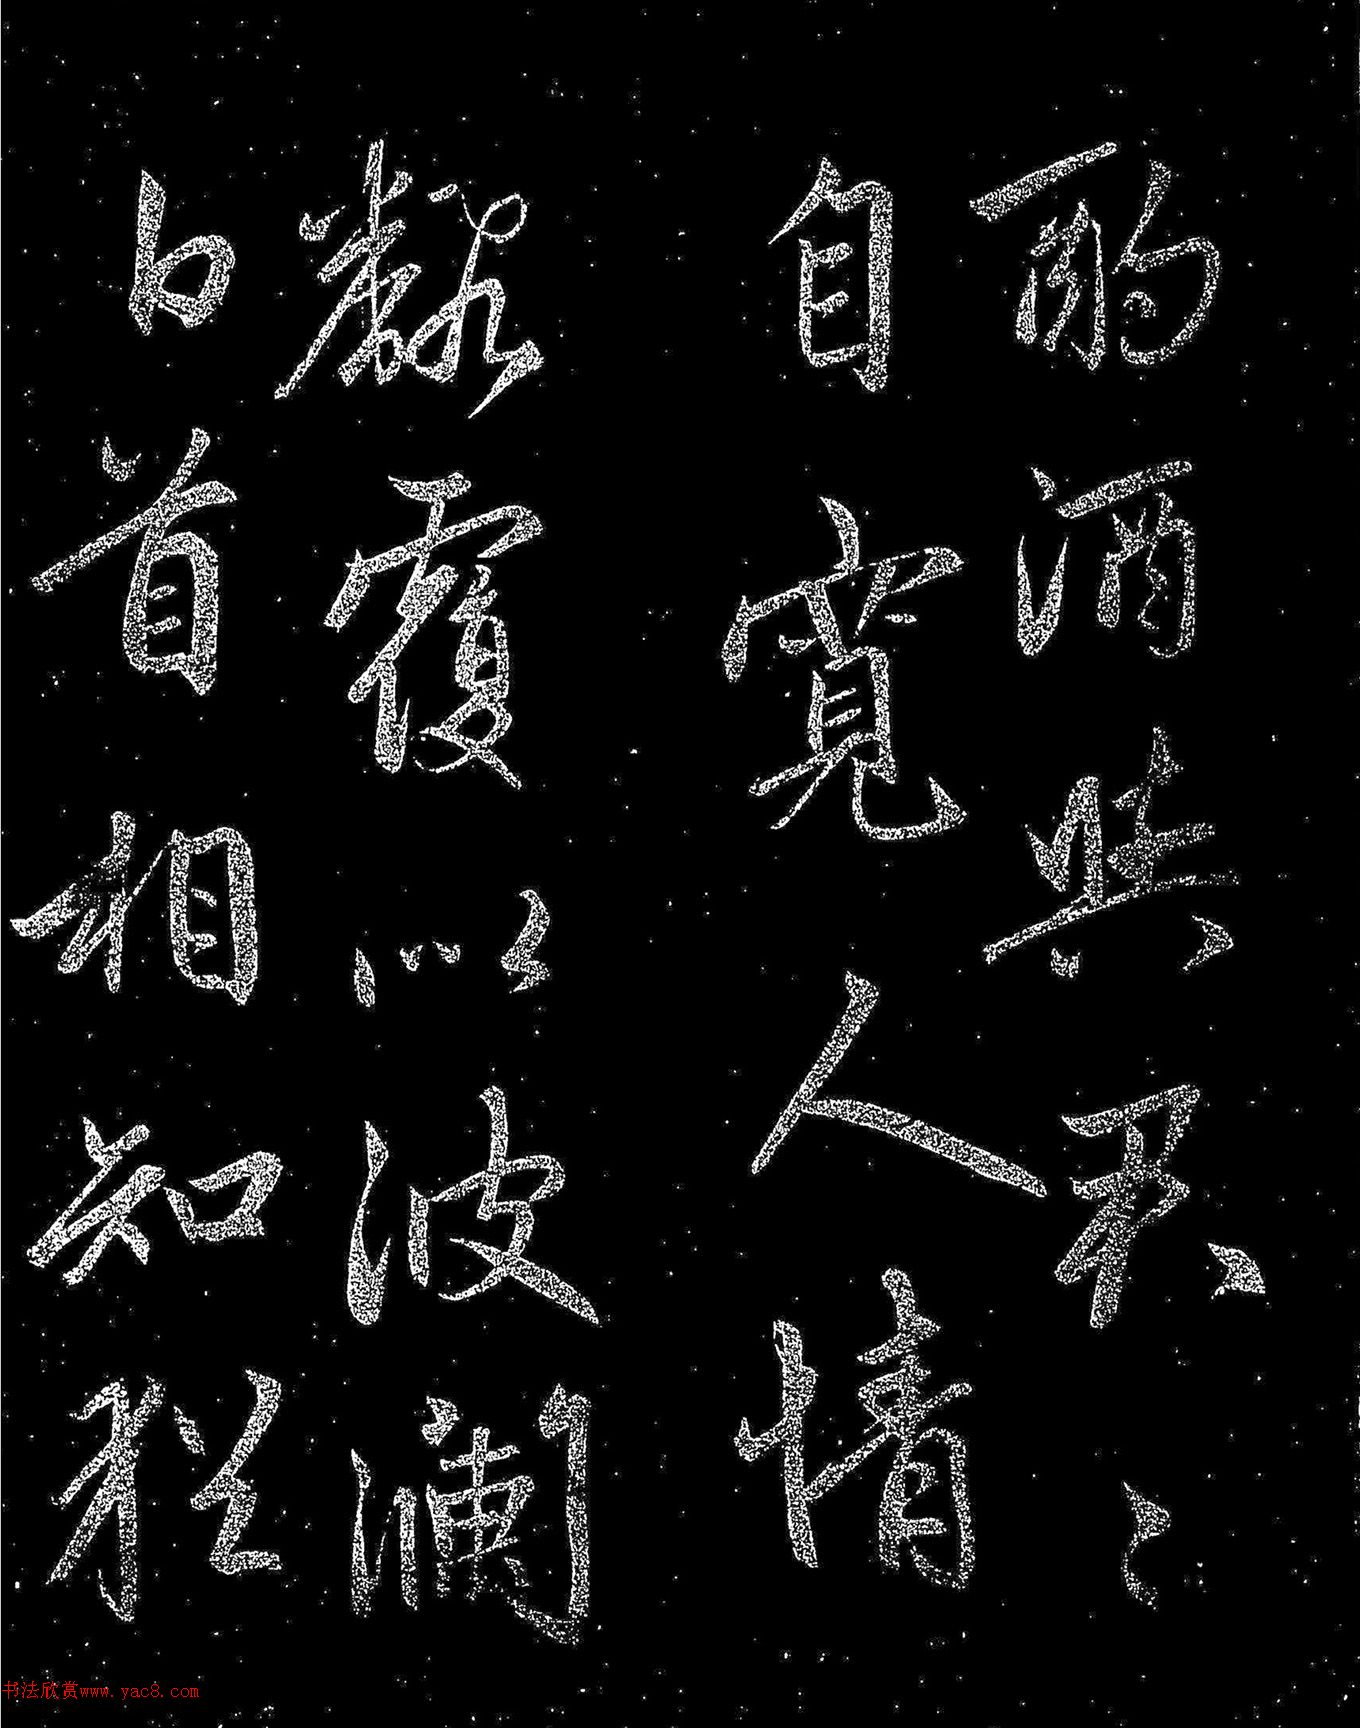 酌酒與君〻
自寬人情
飜覆似波瀾
白首相知猶
书法欣赏www.yac8.com